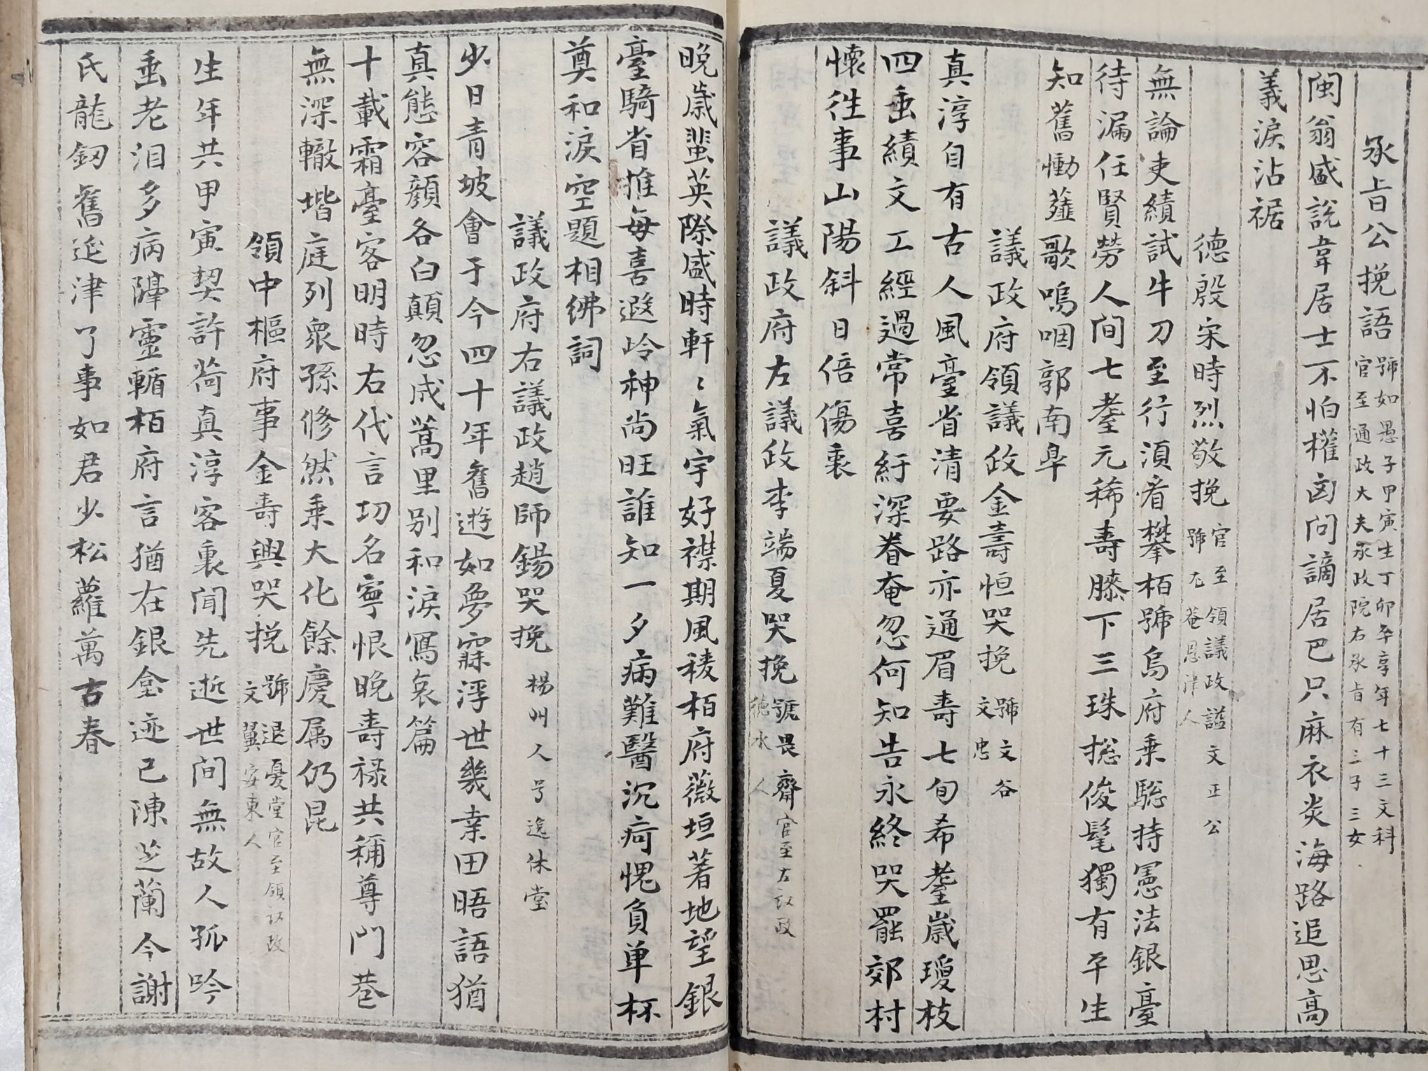 承旨公挽語 號如愚子甲寅生丁卯卒享年七十三文科
官至通政大夫承政院右承旨有三子三女
閩翁盛說韋居士不怕權凶问謫居巴只麻衣炎海路追思高
義淚沾裾
德殷宋時烈敬挽 官至領議政謚文正公
號尤菴恩津人
無論吏績試牛刀至行湏看攀栢號烏府乗驄持憲法銀臺
待漏任賢勞人间七耋元稀壽膝下三珠揔俊髦獨有平生
知舊慟薤歌嗚咽郭南皐
議政府領議政金壽恒哭挽 號文谷
文忠
真淳自有古人風臺省清要路亦通眉壽七旬希耋歲瓊枝
四垂績文工經過常喜紆深眷奄忽何知告永終哭罷郊村
懷徃事山陽斜日倍傷衷
議政府左議政李端夏哭挽 號畏齋官至左议政
德水人
晩歲蜚英際盛時軒〻氣宇好襟期風稜栢府薇垣著地望銀
臺騎省推每喜遐岭神尚旺誰知一夕病難醫沉疴愧負单杯
奠和淚空題相紼詞
議政府右議政趙師錫哭挽 楊州人号逸休堂
少日青坡會于今四十年舊遊如夢寐浮世幾桒田晤語猶
真態容顔各白顛忽成蒿里别和淚寫哀篇
十載霜臺客明時右代言功名寧恨晩壽禄共稱尊門巷
無深轍堦庭列衆孫修然乗大化餘慶属仍昆
領中樞府事金壽興哭挽 號退憂堂官至領议政
文翼安東人
生年共甲寅契許荷真淳客裏闻先逝世间無故人孤吟
垂老泪多病隮靈輴栢府言猶在銀坌迹已陳芝蘭今謝
氏龍釼舊延津了事如君少松蘿萬古春